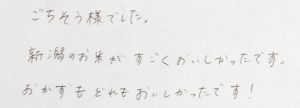 ごちそう様でした。
新潟のお米がすごくおいしかったです。
おかずもどれもおいしかったです！